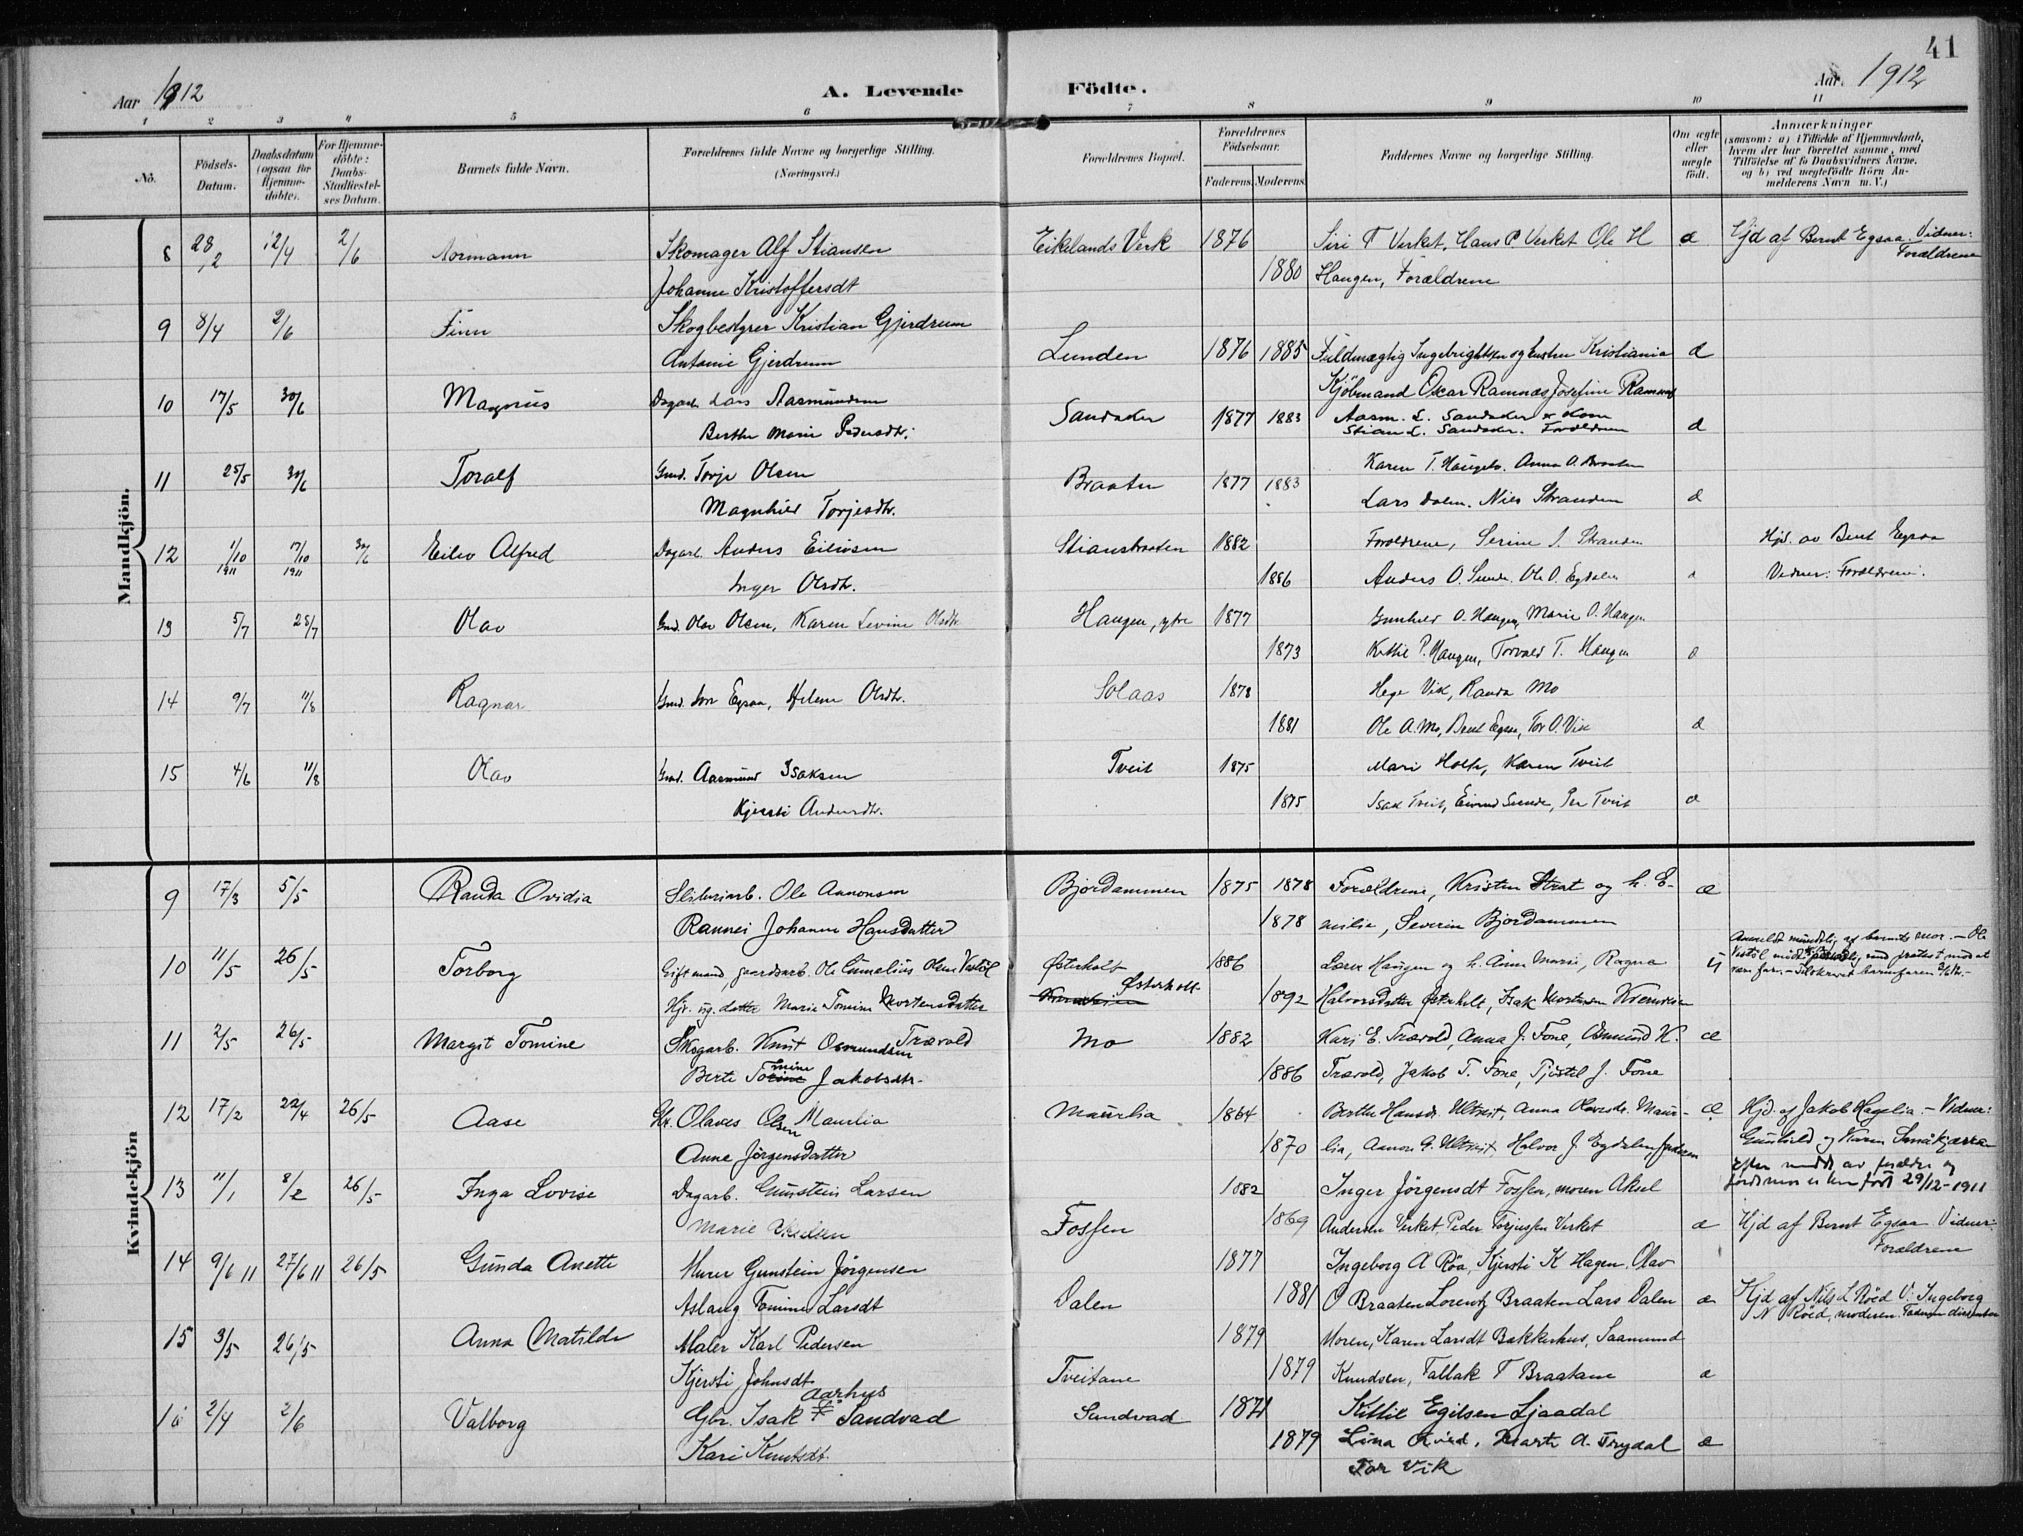 41
Aar 1912 A. Levende Födte. Aar 1912
1 2 3 4 5 6 7 8 9 10 11
No.
Födsels-Datum.
Daabsdatum (ogsaa for Hjemmedöbte).
For Hjemmedöbte: Daabs-Stadfæstelses Datum.
Barnets fulde Navn.
Forældrenes fulde Navne og borgerlige Stilling. (Næringsvei.)
Forældrenes Bopæl.
Forældrenes Födselsaar.
Faderens. Moderens.
Faddernes Navne og borgerlige Stilling.
Om ægte eller uægte født.
Anmærkninger
(saasom: a) i Tilfælde af Hjemmedaab, hvem der har forrettet samme, med Tilföielse af to Daabsvidners Navne, og b) ved uægtefödte Börn Anmelderens Navn m. V.)
Mandkjön.
8 28/2 12/4 2/6 Normann Skomager Alf Stiansen Eikelands Verk 1876 Siri T Verket, Hans P Verket Ole H æ Hjd af Bernt Egsaa Vidner:
Johanne Kristoffersdt 1880 Haugen, Forældrene Forældrene
9 8/4 2/6 Finn Skogbestyrer Kristian Gjerdrum
Antonie Gjerdrum Lunden 1876 1885 Fuldmægtig Ingebrigtsen og hustru Kristiania æ
Kjöbmand Oscar Ramnæs Josefine Ramnæs
10 17/5 30/6 Magnus Dagarb. Lars Aasmundsen
Berthe Marie Pedersdtr. Sandaker 1877 1883 Aasm. L. Sandaker & Kone
Stian L. Sandaker. Forældrene æ
11 25/5 30/6 Toralf Gmd. Torje Olsen Braaten 1877 1883 Karen T. Haugeto. Anna O. Braaten
Magnhild Torjesdtr. Lars Dalen. Nils Stranden æ
12 1/10 1911 17/10 1911 30/6 Eilev Alfred Dagarb. Anders Eilevsen Stiansbraaten 1882 Forældrene, Serine J. Stranden Hjd. av Bent Egsaa
Inger Olsdtr. 1886 Anders O. Sunde. Ole O. Egdalen æ Vidner: Forældrene.
13 5/7 28/7 Olav Gmd. Olav Olsen, Karen Levine Olsdtr Haugen, ytre 1877 Gunhild O. Haugen, Marie O. Haugen
1873 Kittil P. Haugen, Torvald T. Haugen æ
14 9/7 11/8 Ragnar Gmd. Egsaa, Helene Olsdtr. Solaas 1878 Hege Vik, Randa Mo
1881 Ole A. Mo, Bent Egsaa, Tor O. Vik æ
15 4/6 11/8 Olav Gmd. Aasmund Isaksen Tveit 1875 Mari Holte, Karen Tveit
Kjersti Andersdtr. 1875 Isak Tveit, Eivind Sunde, Per Tveit æ
Kvindekjön
9 17/3 5/5 Randa Ovidia Sliberiarb. Ole Aanonsen Bjordammen 1875 1878 Forældrene, Kristen Strat og h. E- æ
Rannei Johanne Hansdatter 1878 milie, Severin Bjordammen
10 11/5 26/5 Torborg Gift mand, gaardsarb. Ole Cornelius Olsen Vestöl Østerholt 1886 Lars Haugen og h. Anne Marie, Ragna u
Hjv. ug. datter Marie Tomine Mortensdatter Østerholt 1892 Halvorsdatter Østerholt, Isak Mortensen
11 2/5 26/5 Margit Tomine Skogarb. Knut Osmundsen Trævold Mo 1882 Kari E. Trævold, Anna J. Fone, Osmund K. æ
Berte Tomine Jakobsdtr. 1886 Trævold, Jakob T. Fone, Tjöstel J. Fone
12 17/2 22/4 26/5 Aase Olaves Olsen Maurlia Maurlia 1864 Berthe Hansdr. Ulltveit, Anna Olavesdr. Maur- æ Hjd. af Jakob Hagelia. - Vidner:
Anne Jørgensdatter 1870 lia, Aanon G. Ulltveit Halvor J. Egdalen, faderen Gunhild og Karen Småkjærra
13 11/1 8/2 26/5 Inga Lovise Dagarb. Gunstein Larsen 1882 Inger Jörgensdt Fosfen, moren Aksel Efter meddt. av forældre og jordmor er hun født 29/12-1911
Marie Fosfen 1869 Andersen Verket, Peder Torjussen Verket æ Hjd af Bernt Egsaa Vidner:
Forældrene
14 9/6 11 27/6 11 26/5 Gunda Anette Murer Gunstein Jörgensen 1877 Ingeborg A Röa, Kjersti K Hagen, Olav
Aslaug Tomine Larsdt Dalen 1881 O Braaten Lorentz Braaten Lars Dalen æ Hjd af Nils L Röed V: Ingeborg
N Röed, moderen. Faderen dissenter
15 3/5 26/5 Anna Matilde Maler Karl Pedersen 1879 Moren, Karen Larsdt Bakkerhus, Saamund
Kjersti Johnsdt Tveitane 1879 Knudsen, Tallak T Braatane æ
16 2/4 2/6 Valborg Gbr. Isak Aarhus Sandvad Sandvad 1871 Kittil Egilsen Ljaadal
Kari Knutsdt. 1879 Lina Kvied, Marte A. Frydal æ
Tor Vik